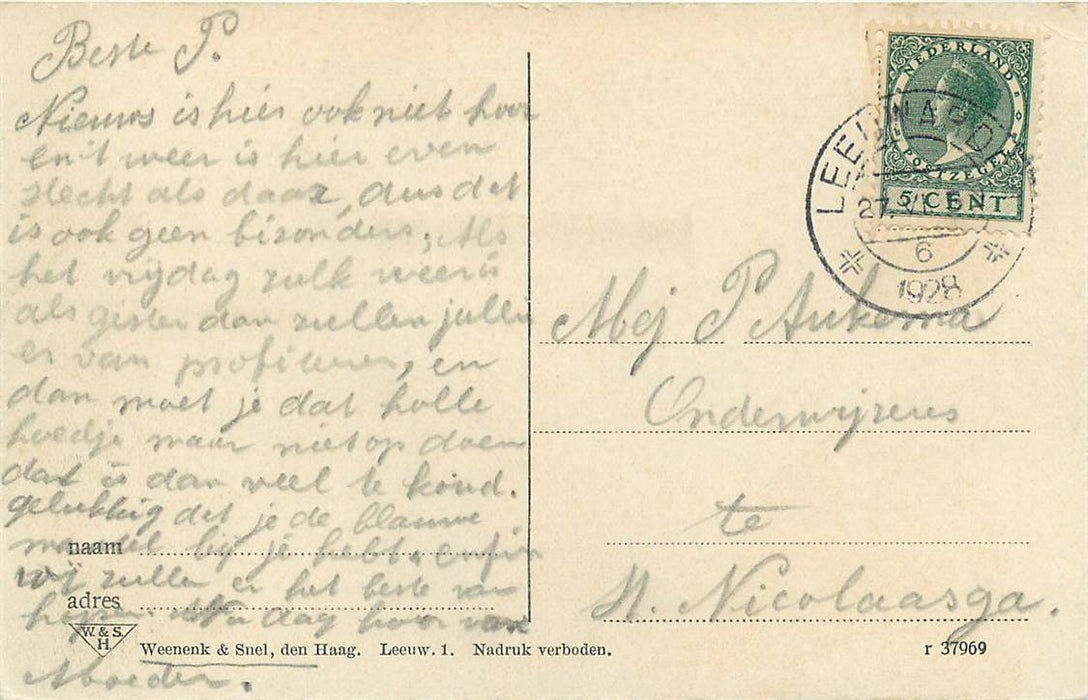 Beste P.
Nieuws is hier ook niet hoor
en't weer is hier even
slecht als daar, dus dat
is ook geen bizonders. Als
het vrijdag zulk weer is
als gister dan zullen jullie
er van profiteren, en
dan moet je dat holle
hoedje maar niet op doen
dat is dan veel te koud.
gelukkig dat je de blauwe
mantel bij je hebt. enfin
wij zullen er het beste van
hopen. Nu dag hoor van
Moeder.
naam
adres
W. & S.
H.
Weenenk & Snel, den Haag. Leeuw. 1. Nadruk verboden.
r 37969
NEDERLAND
POSTZEGEL
5 CENT
LEEUWARDEN
27.VI
6
1928
Mej P Aukema
Onderwijzeres
te
St. Nicolaasga.